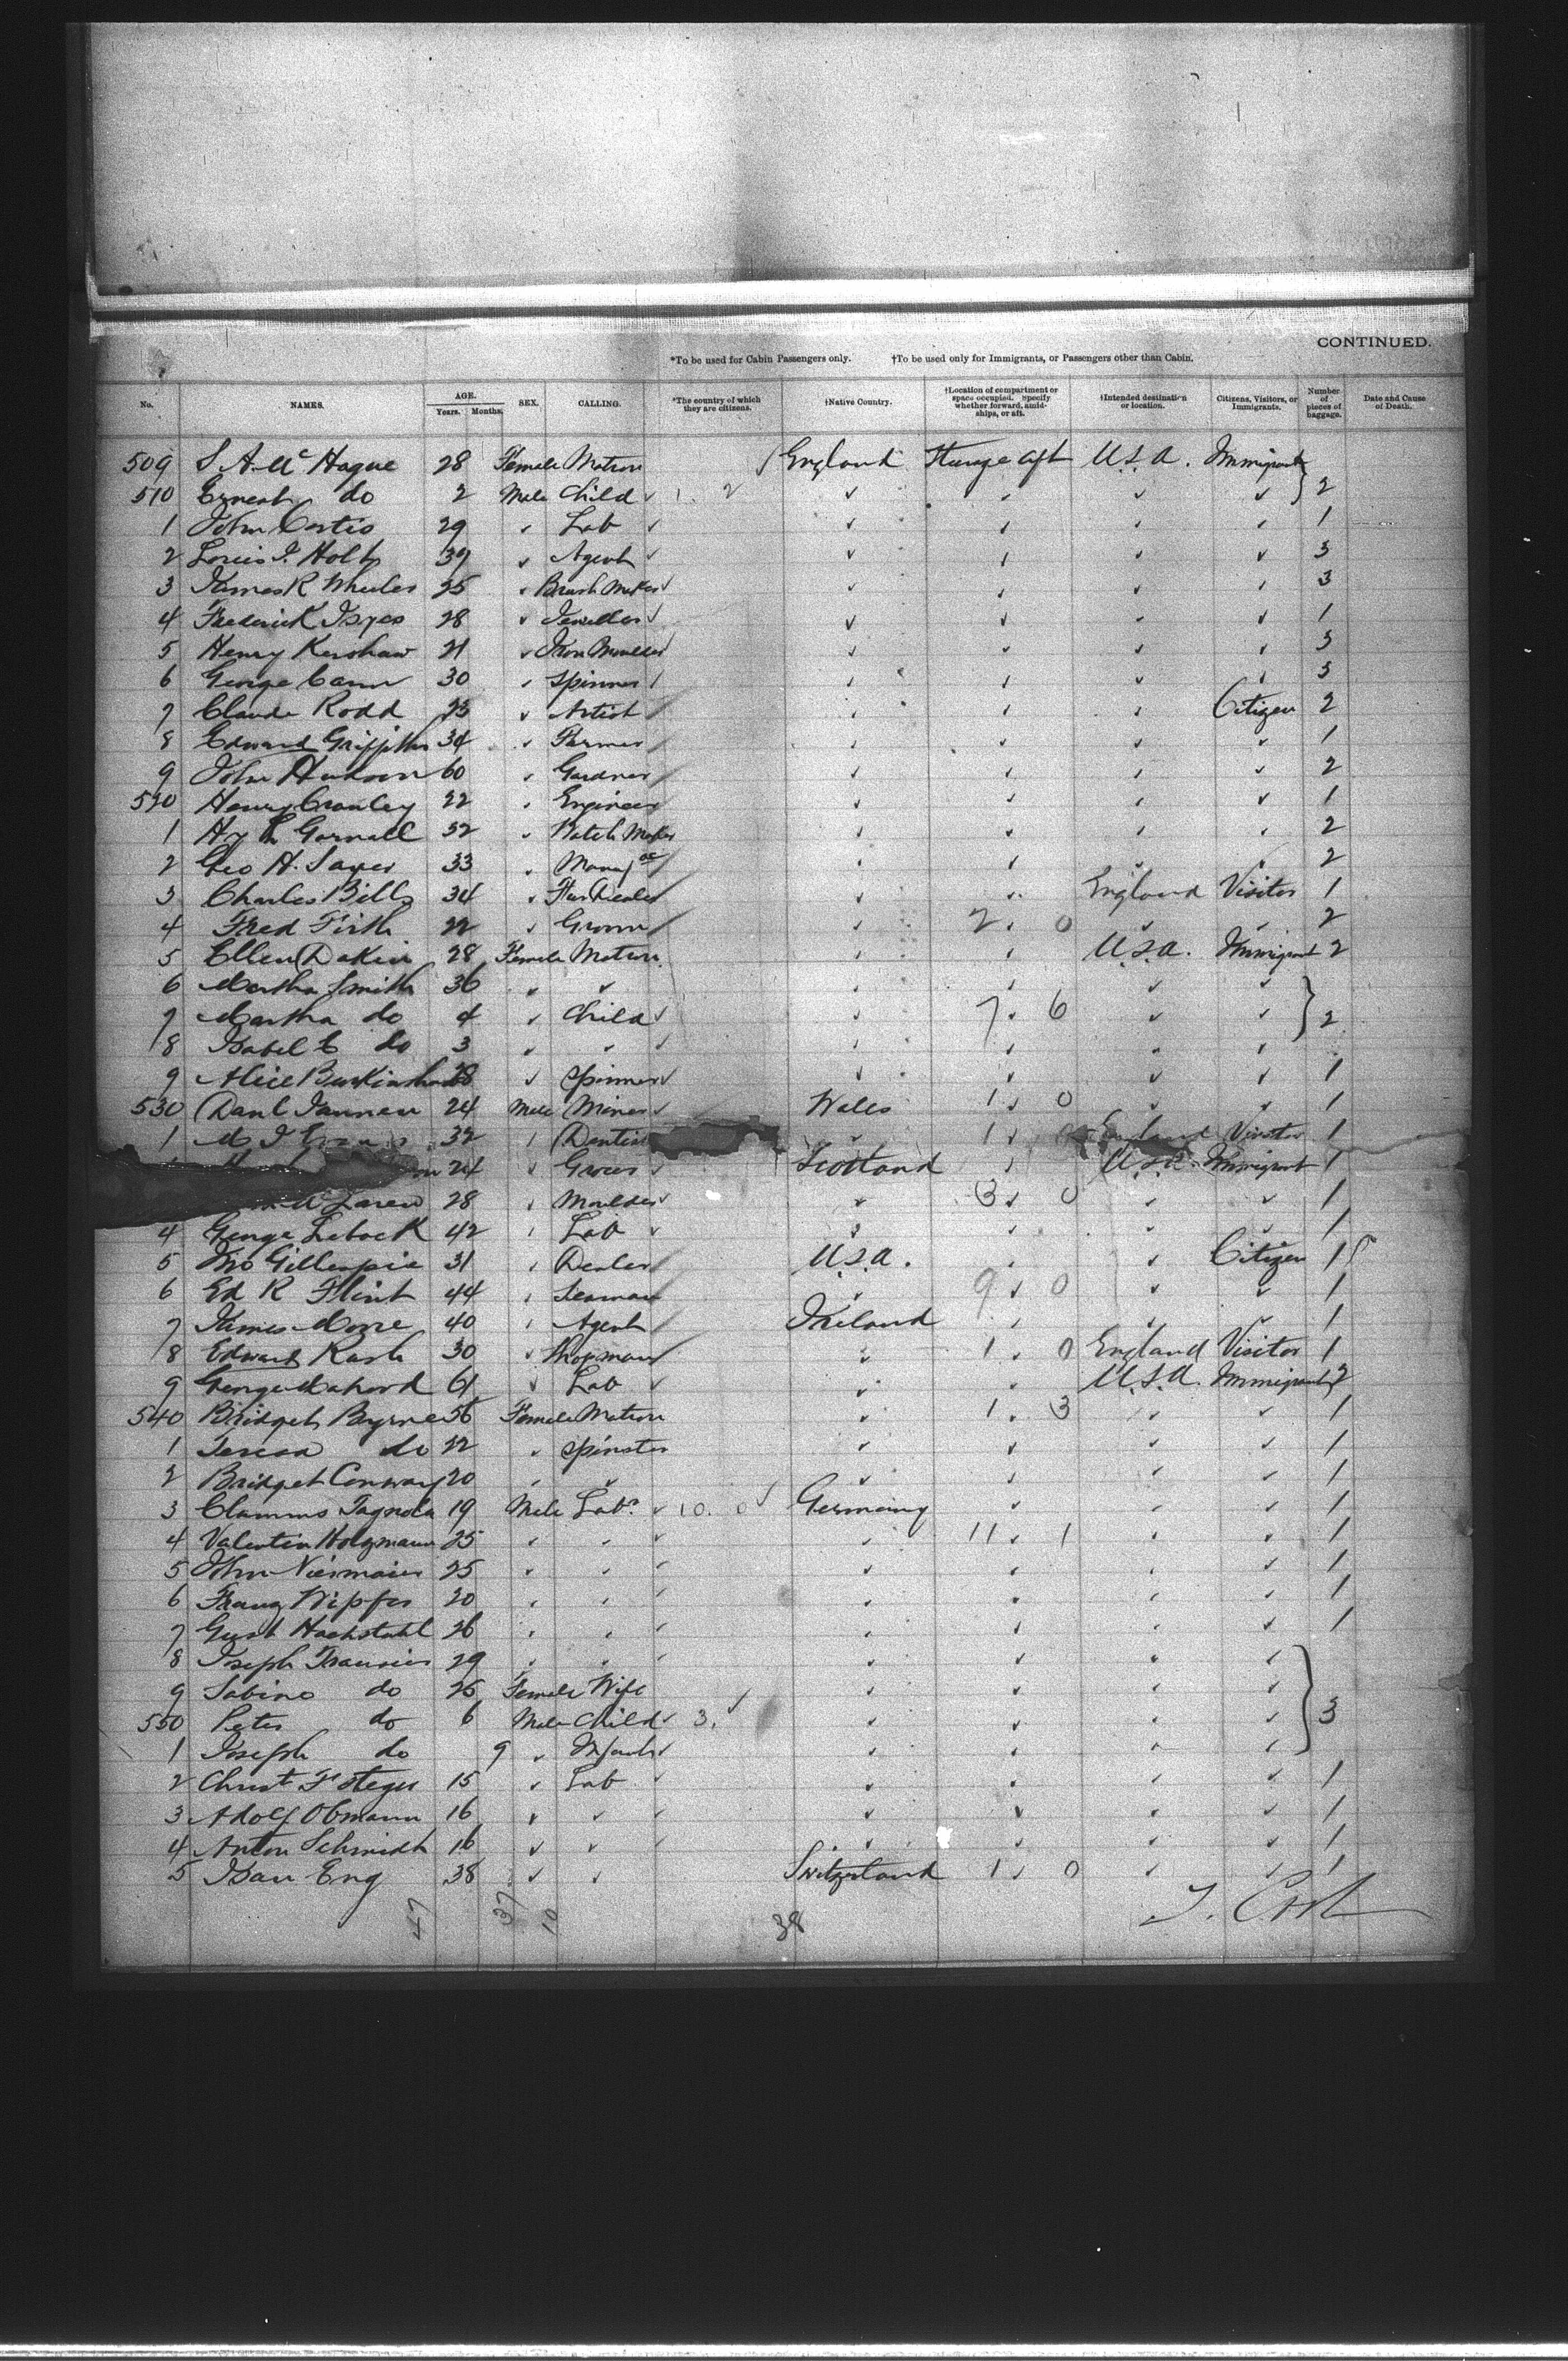 CONTINUED.
*To be used for Cabin Passengers only. †To be used only for Immigrants, or Passengers other than Cabin.
No. NAMES. AGE. Years. Months. SEX. CALLING. *The country of which they are citizens. †Native Country. †Location of compartment or space occupied. Specify whether forward, amidships, or aft. †Intended destination or location. Citizens, Visitors, or Immigrants. Number of pieces of baggage. Date and Cause of Death.
509 S A. Mc Hague 28 Female Matron England Steerage aft U.S.A. Immigrant
510 Ernest do 2 Male Child ✓ 1. 2 ✓ ✓ ✓ ✓ 2
1 John 29 ✓ Lab ✓ ✓ ✓ ✓ ✓ 1
2 Louis J. Holt 39 ✓ Agent ✓ ✓ ✓ ✓ ✓ 3
3 James R Wheeler 25 ✓ Brush Maker ✓ ✓ ✓ ✓ ✓ 3
4 Frederick 28 ✓ Jeweller ✓ ✓ ✓ ✓ ✓ 1
5 Henry Kershaw 21 ✓ Iron Moulder ✓ ✓ ✓ ✓ 3
6 George Cann 30 ✓ Spinner ✓ ✓ ✓ ✓ 3
7 Claude Rodd 23 ✓ Artist ✓ ✓ ✓ Citizen 2
8 Edward Griffiths 34 ✓ Farmer ✓ ✓ ✓ ✓ 1
9 John Hudson 60 ✓ Gardner ✓ ✓ ✓ ✓ 2
520 Henry Crowley 22 ✓ Engineer ✓ ✓ ✓ ✓ 1
1 Hy Gornall 32 ✓ Watch Maker ✓ ✓ ✓ ✓ 2
2 Geo H. Sayer 33 ✓ ✓ ✓ ✓ ✓ 2
3 Charles Bills 34 ✓ Dealer ✓ ✓ England Visitor 1
4 Fred Firth 22 ✓ Groom ✓ 2 ✓ 0 ✓ ✓ 2
5 Ellen Dakin 28 Female Matron ✓ ✓ U.S.A. Immigrant 2
6 Martha Smith 36 ✓ ✓ ✓ ✓ ✓ ✓
7 Martha do 4 ✓ Child ✓ ✓ 7 ✓ 6 ✓ ✓ 2
8 Isabel E do 3 ✓ ✓ ✓ ✓ ✓ ✓ ✓
9 Alice Burkinshaw 28 ✓ Spinner ✓ ✓ ✓ ✓ ✓ 1
530 Danl 24 Male Miner ✓ Wales 1 ✓ 0 ✓ ✓ 1
1 M J Evans 32 ✓ ✓ 1 ✓ England Visitor 1
24 ✓ Grocer ✓ Scotland ✓ U.S.A. Immigrant 1
Laren 28 ✓ Moulder ✓ ✓ 3 ✓ 0 ✓ ✓ 1
4 George 42 ✓ Lab ✓ ✓ ✓ ✓ ✓ 1
5 Gillespie 31 ✓ Dealer U.S.A. ✓ ✓ Citizen 1
6 Ed R Flint 44 ✓ Seaman ✓ 9 ✓ 0 ✓ ✓ 1
7 James Moore 40 ✓ Agent Ireland ✓ ✓ ✓ 1
8 Edward 30 ✓ Shopman ✓ 1 ✓ 0 England Visitor 1
9 George 61 ✓ Lab ✓ ✓ ✓ U.S.A. Immigrant 2
540 Bridget Byrne 56 Female Matron ✓ 1 ✓ 3 ✓ ✓ 1
1 Teresa do 22 ✓ Spinster ✓ ✓ ✓ ✓ 1
2 Bridget Conway 20 ✓ ✓ ✓ ✓ ✓ ✓ 1
3 19 Male Labr ✓ 10. 0 ✓ Germany ✓ ✓ ✓ 1
4 Valentin Holzmann 25 ✓ ✓ ✓ ✓ 11 ✓ 1 ✓ ✓ 1
5 John Niermaier 25 ✓ ✓ ✓ ✓ ✓ ✓ ✓ 1
6 Franz Wipfer 20 ✓ ✓ ✓ ✓ ✓ ✓ ✓ 1
7 Gust Hochstahl 26 ✓ ✓ ✓ ✓ ✓ ✓ ✓ 1
8 Joseph 29 ✓ ✓ ✓ ✓ ✓ ✓ ✓
9 Sabina do 26 Female Wife ✓ ✓ ✓ ✓
550 Peter do 6 Male Child ✓ 3. ✓ ✓ ✓ ✓ ✓ 3
1 Joseph do 9 ✓ Infant ✓ ✓ ✓ ✓ ✓
2 Christ 15 ✓ Lab ✓ ✓ ✓ ✓ ✓ 1
3 Adolf Obmann 16 ✓ ✓ ✓ ✓ ✓ ✓ ✓ 1
4 Anton Schmidt 16 ✓ ✓ ✓ ✓ ✓ ✓ ✓ 1
5 Eng 38 ✓ ✓ Switzerland 1 ✓ 0 ✓ ✓ 1
47 37 10 38